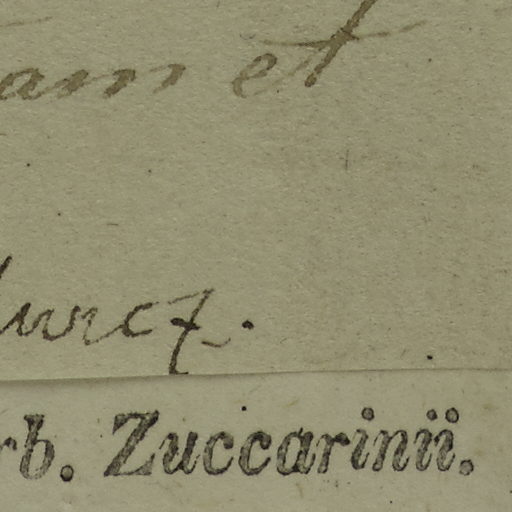 am et
urcz.
rb. Zuccarinii.